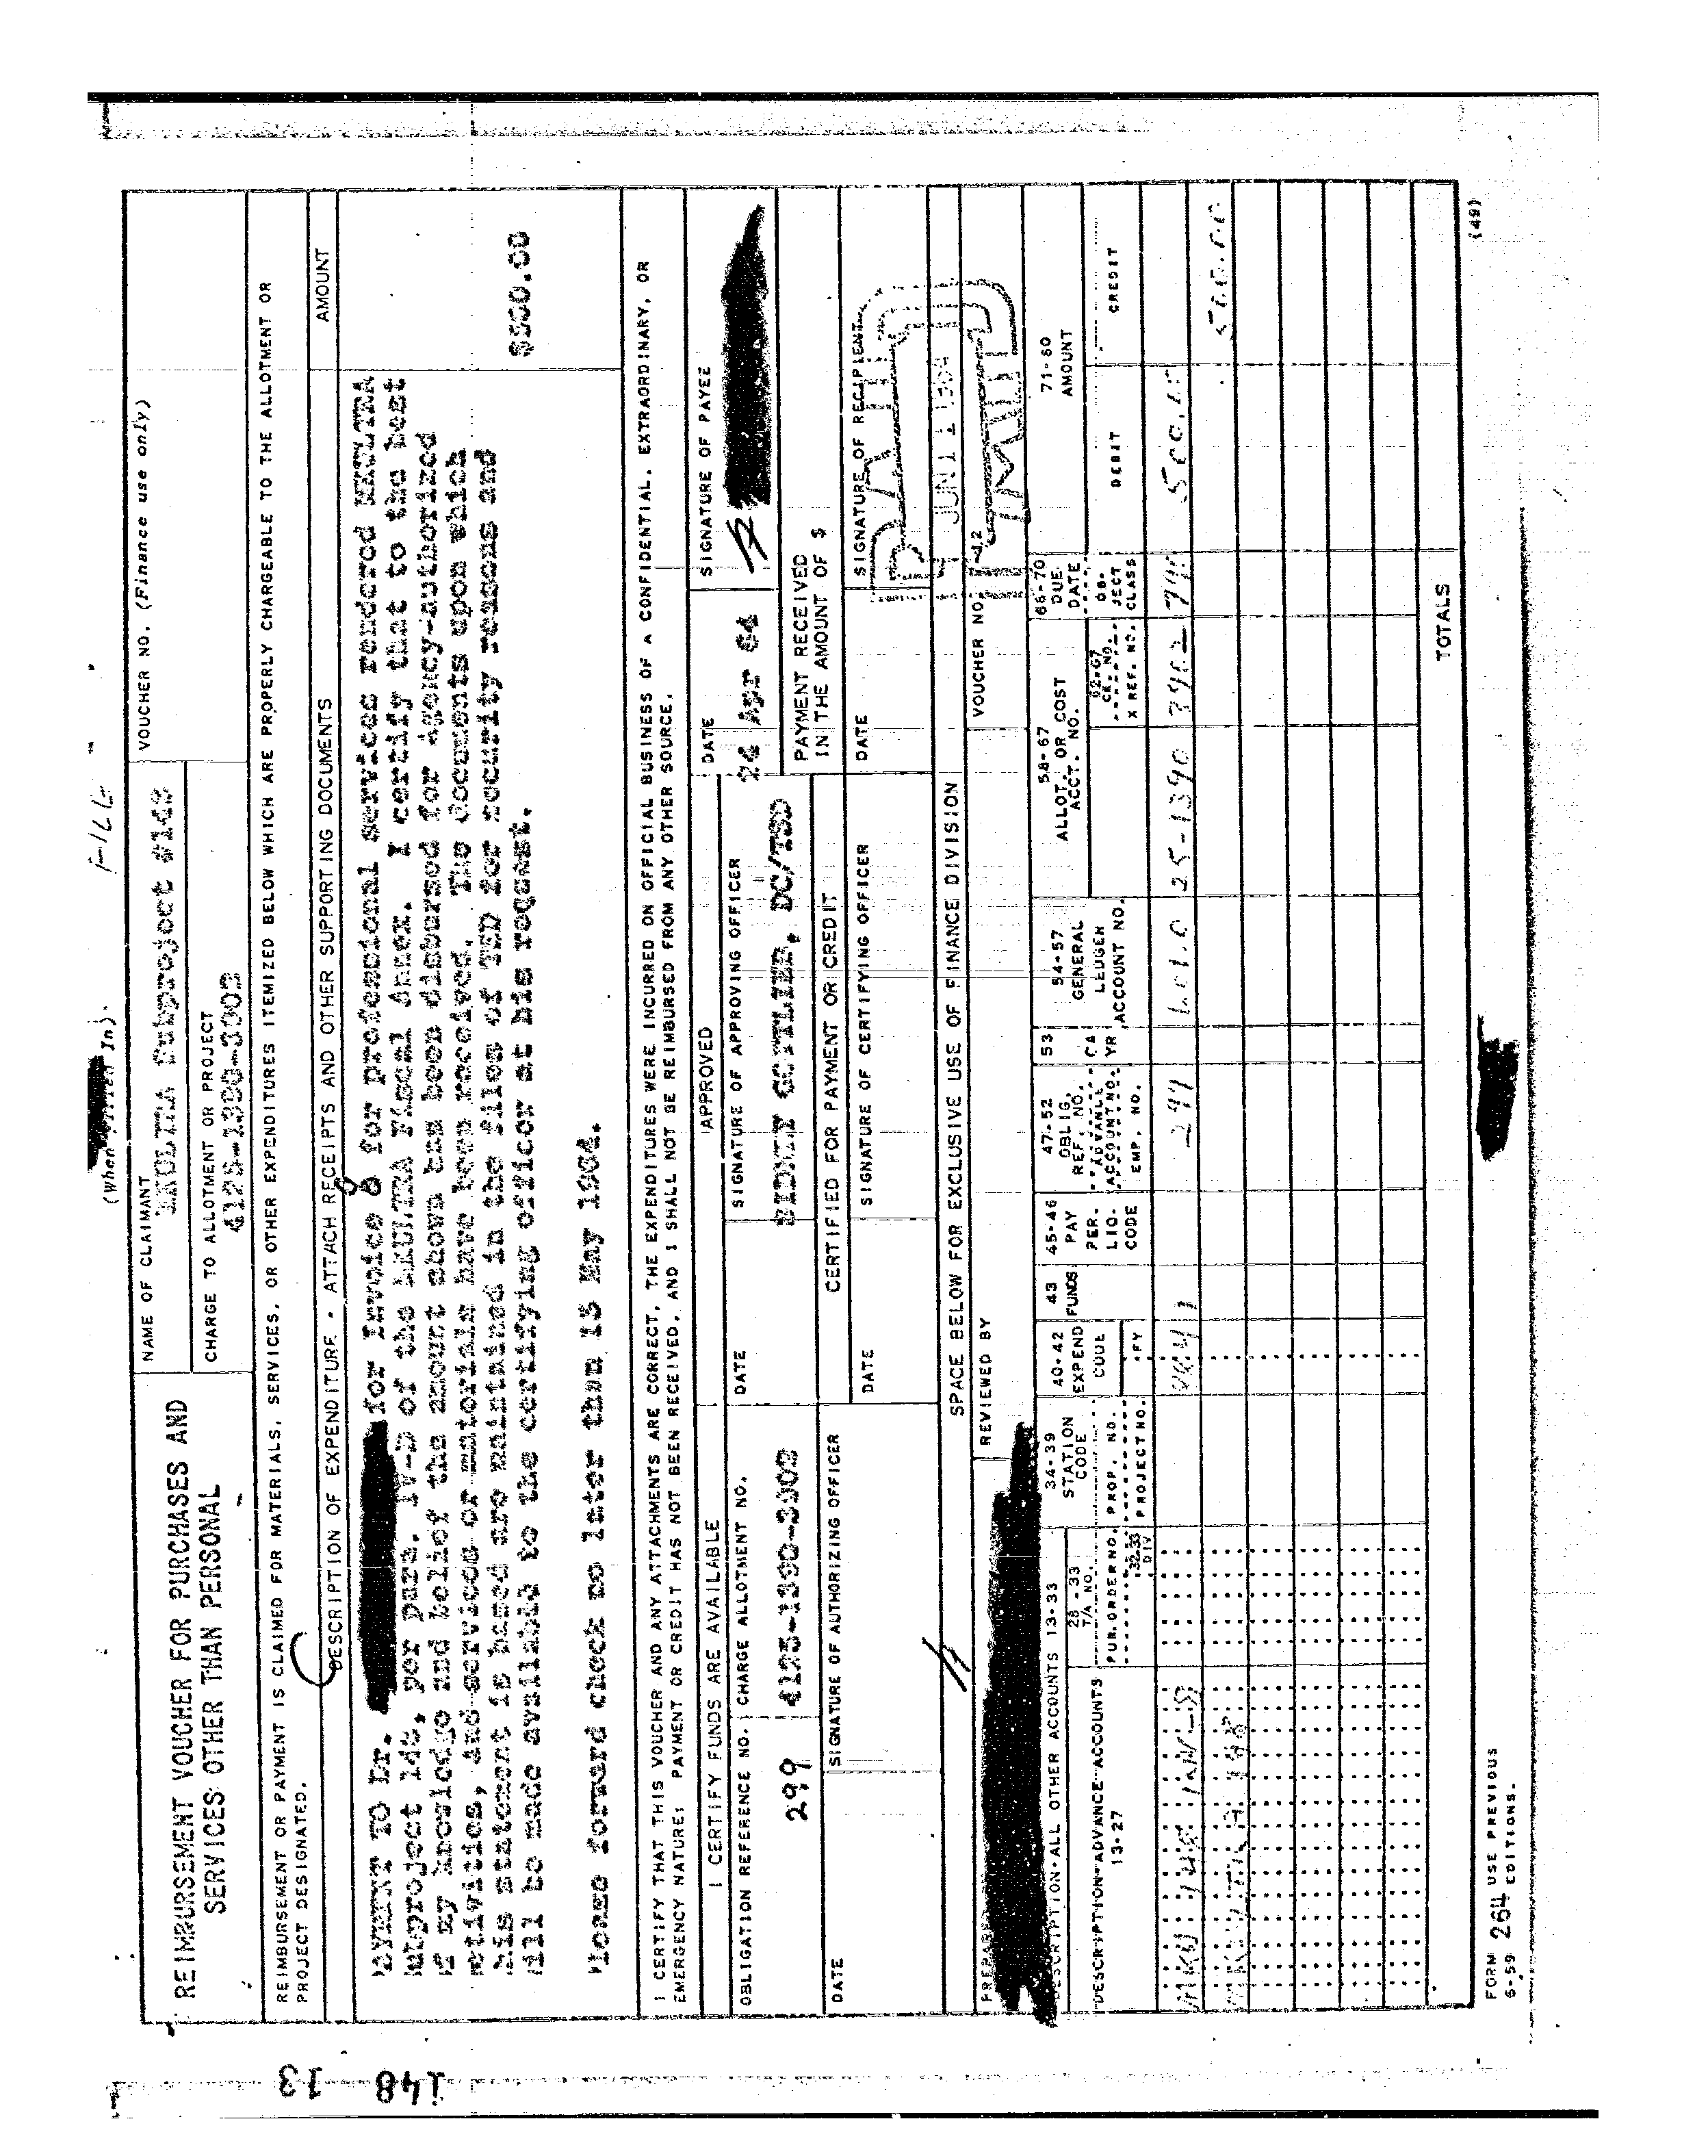 (When In).
FILE
REIMBURSEMENT VOUCHER FOR PURCHASES AND
SERVICES OTHER THAN PERSONAL
NAME OF CLAIMANT
MKULTRA Subproject #148
VOUCHER NO. (Finance use only)
CHARGE TO ALLOTMENT OR PROJECT
4125-1390-3902
REIMBURSEMENT OR PAYMENT IS CLAIMED FOR MATERIALS, SERVICES, OR OTHER EXPENDITURES ITEMIZED BELOW WHICH ARE PROPERLY CHARGEABLE TO THE ALLOTMENT OR
PROJECT DESIGNATED.
DESCRIPTION OF EXPENDITURE - ATTACH RECEIPTS AND OTHER SUPPORTING DOCUMENTS
AMOUNT
PAYMENT TO Dr. for Invoice 8 for professional services rendered MKULTRA
Subproject 148, per para. IV-D of the MKULTRA Fiscal Annex. I certify that to the best
of my knowledge and belief the amount shown has been disbursed for agency-authorized
activities, and services or materials have been received. The documents upon which
this statement is based are maintained in the files of TSD for security reasons and
will be made available to the certifying officer at his request.
$500.00
Please forward check no later than 15 May 1964.
I CERTIFY THAT THIS VOUCHER AND ANY ATTACHMENTS ARE CORRECT, THE EXPENDITURES WERE INCURRED ON OFFICIAL BUSINESS OF A CONFIDENTIAL, EXTRAORDINARY, OR
EMERGENCY NATURE; PAYMENT OR CREDIT HAS NOT BEEN RECEIVED, AND I SHALL NOT BE REIMBURSED FROM ANY OTHER SOURCE.
I CERTIFY FUNDS ARE AVAILABLE
APPROVED
DATE
SIGNATURE OF PAYEE
OBLIGATION REFERENCE NO.
CHARGE ALLOTMENT NO.
DATE
SIGNATURE OF APPROVING OFFICER
24 Apr 64
299
4125-1390-3902
SIDNEY GOTTLIEB, DC/TSD
PAYMENT RECEIVED
IN THE AMOUNT OF $
CERTIFIED FOR PAYMENT OR CREDIT
DATE
SIGNATURE OF AUTHORIZING OFFICER
DATE
SIGNATURE OF CERTIFYING OFFICER
DATE
SIGNATURE OF RECIPIENT
PAID
JUN 11 1964
SPACE BELOW FOR EXCLUSIVE USE OF FINANCE DIVISION
REVIEWED BY
VOUCHER NO.
DESCRIPTION-ALL OTHER ACCOUNTS 13-33
34-39
STATION
CODE
40-42
EXPEND
CODE
43
FUNDS
45-46
PAY
PER.
LIQ.
CODE
47-52
OBLIG.
REF. NO.
ADVANCE
ACCOUNT NO.
EMP. NO.
53
CA
YR
54-57
GENERAL
LEDGER
ACCOUNT NO.
58-67
ALLOT. OR COST
ACCT. NO.
66-70
DUE
DATE
71-80
AMOUNT
DESCRIPTION-ADVANCE ACCOUNTS
13-27
28-33
T/A NO.
PUR. ORDER NO.
32-33
DIV
PROP. NO.
PROJECT NO.
FY
62-67
CK. NO.
X REF. NO.
OB-
JECT
CLASS
DEBIT
CREDIT
299
25-1390
3902
500.00
500.00
TOTALS
FORM
6-59
264
USE PREVIOUS
EDITIONS.
(49)
148 13